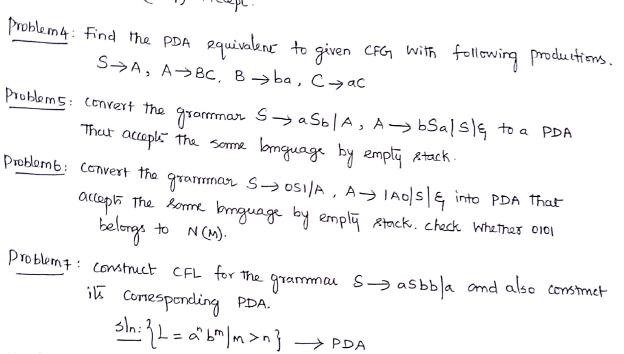 accept.
Problem4: Find the PDA equivalent to given CFG with following productions.
S→A, A→BC, B→ba, C→aC
Problem5: convert the grammar S→aSb|A, A→bSa|S|ε to a PDA
That accepts the same language by empty stack.
Problem6: convert the grammar S→0S1|A, A→1A0|S|ε into PDA that
accepts the same language by empty stack. check whether 0101
belongs to N(M).
Problem7: construct CFL for the grammar S→aSbb|a and also construct
its corresponding PDA.
Sln: {L = aⁿbᵐ|m>n} → PDA